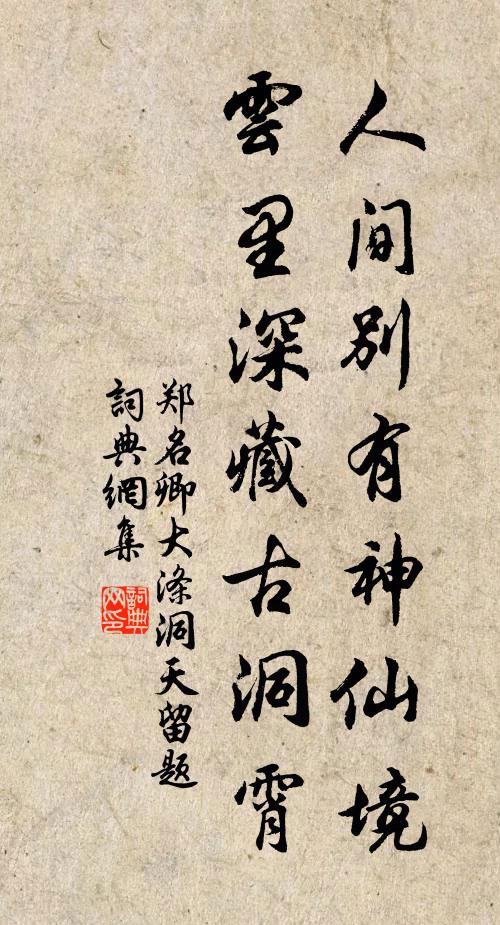 人间别有神仙境
雲里深藏古洞霄
郑名卿大涤洞天留题
詞典網集
詞典网印